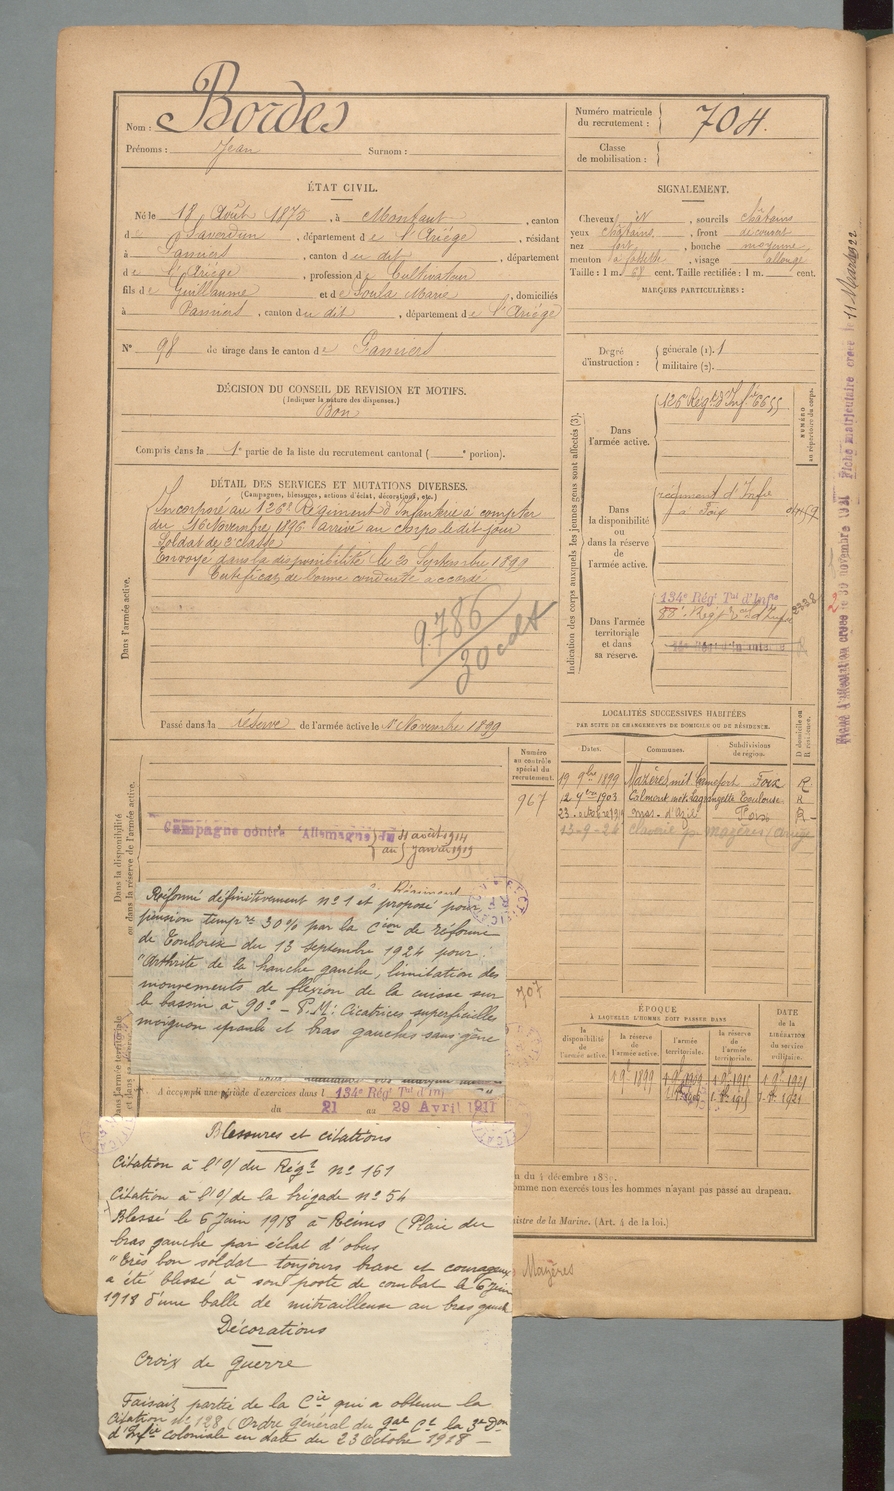 Nom : Bordes
Prénoms : Jean Surnom :
Numéro matricule du recrutement : 704.
Classe de mobilisation :
ÉTAT CIVIL.
Né le 18 Août 1875, à Montaut, canton
de Saverdun, département de l'Ariége, résidant
à Pamiers, canton du dit, département
de l'Ariége, profession de Cultivateur
fils de Guillaume et de Soula Marie, domiciliés
à Pamiers, canton du dit, département de l'Ariége
N° 98 de tirage dans le canton de Pamiers
SIGNALEMENT.
Cheveux, sourcils châtains
yeux châtains, front découvert
nez fort, bouche moyenne
menton à fossette, visage allongé
Taille : 1 m. 68 cent. Taille rectifiée : 1 m. cent.
MARQUES PARTICULIÈRES :
Degré d'instruction : générale (1). 1
militaire (2).
DÉCISION DU CONSEIL DE REVISION ET MOTIFS.
(Indiquer la nature des dispenses.)
Bon
Compris dans la 1re partie de la liste du recrutement cantonal ( e portion).
DÉTAIL DES SERVICES ET MUTATIONS DIVERSES.
(Campagnes, blessures, actions d'éclat, décorations, etc.)
Dans l'armée active.
Incorporé au 126e Régiment d'Infanterie à compter
du 16 Novembre 1896 arrivé au corps le dit jour
Soldat de 2e classe
Envoyé dans la disponibilité le 20 Septembre 1899
Certificat de bonne conduite accordé
9.786
30 cdt
Passé dans la réserve de l'armée active le 1er Novembre 1899
Indication des corps auxquels les jeunes gens sont affectés (3).
NUMÉRO au répertoire du corps.
Dans l'armée active.
126e Régt d'Infie 6655
Dans la disponibilité ou dans la réserve de l'armée active.
régiment d'Infie
à Foix
Dans l'armée territoriale et dans sa réserve.
134e Régt Tal d'Infie
Fiche matriculaire créée le 11 Mars 1922
LOCALITÉS SUCCESSIVES HABITÉES
PAR SUITE DE CHANGEMENTS DE DOMICILE OU DE RÉSIDENCE.
Dates. Communes. Subdivisions de région. D domicile ou R résidence.
19 9bre 1899 Mazères, mét. Foix R
1903 Calmont mét. Lagrangette Toulouse R
23 octobre 1919 mas-d'Azil Foix R
13-9-26 mazères (Ariège
Dans la disponibilité ou dans la réserve de l'armée active.
Numéro au contrôle spécial du recrutement.
967
Campagne contre l'Allemagne du 11 août 1914
au 5 janvier 1919
Réformé définitivement n° 1 et proposé pour
pension tempre 30% par la Cion de réforme
de Toulouse du 13 septembre 1924 pour :
"Arthrite de la hanche gauche, limitation des
mouvements de flexion de la cuisse sur
le bassin à 90° — P.M : Cicatrices superficielles
moignon épaule et bras gauches sans gêne
707
Dans l'armée territoriale et dans sa
A accompli une période d'exercices dans l 134e Régt Tal d'Infie
du 21 au 29 Avril 1911
ÉPOQUE
À LAQUELLE L'HOMME DOIT PASSER DANS
DATE de la LIBÉRATION du service militaire.
la disponibilité de l'armée active. la réserve de l'armée active. l'armée territoriale. la réserve de l'armée territoriale.
u du 4 décembre 18
omme non exercés tous les hommes n'ayant pas passé au drapeau.
nistre de la Marine. (Art. 4 de la loi.)
Mazères
Blessures et citations
Citation à l'O/ du Régt n° 161
Citation à l'O/ de la brigade n° 54
Blessé le 6 Juin 1918 à Reims (Plaie du
bras gauche par éclat d'obus
"Très bon soldat toujours brave et courageux
a été blessé à son poste de combat le 6 Juin
1918 d'une balle de mitrailleuse au bras gauche
Décorations
Croix de guerre
Faisait partie de la Cie qui a obtenu la
Citation n° 128 (Ordre général du gal Ct la 3e Don
d'Infie coloniale en date du 23 Octobre 1918 —